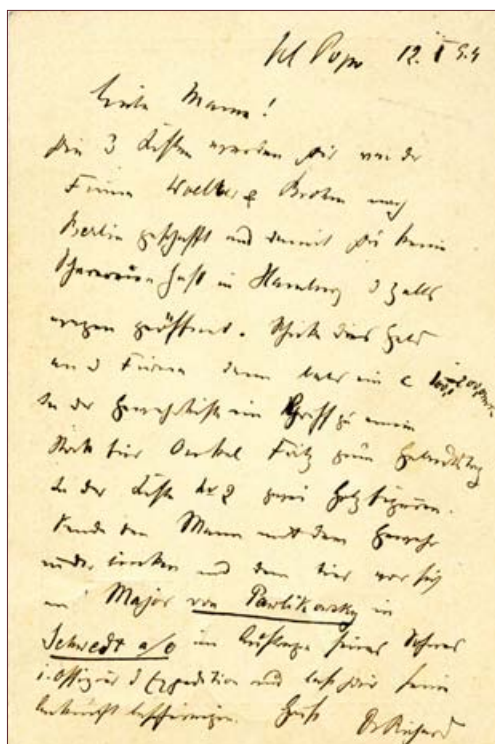 Kl Popo 12. I 94
Liebe Mama!
Die 3 Kisten werden Dir von der
Firma Woelber & Brohm nach
Berlin geschafft und damit Du keine
in Hamburg d Zolls
wegen geöffnet. Schick dies Geld
an d Firma
In der Gewehrkiste ein Griff zu einem
Stock für Onkel Fritz zum Geburtstag
In der Kiste No 2 zwei Holzfiguren.
Sende den Mann mit dem Gewehr
und dem Tier vor sich
an Major von Pawlikowsky in
Schwedt a/O im Auftrage seines Sohnes
i. Offizier d Expedition und laß Dir seine
Ankunft bescheinigen. Gruß Dr Richard